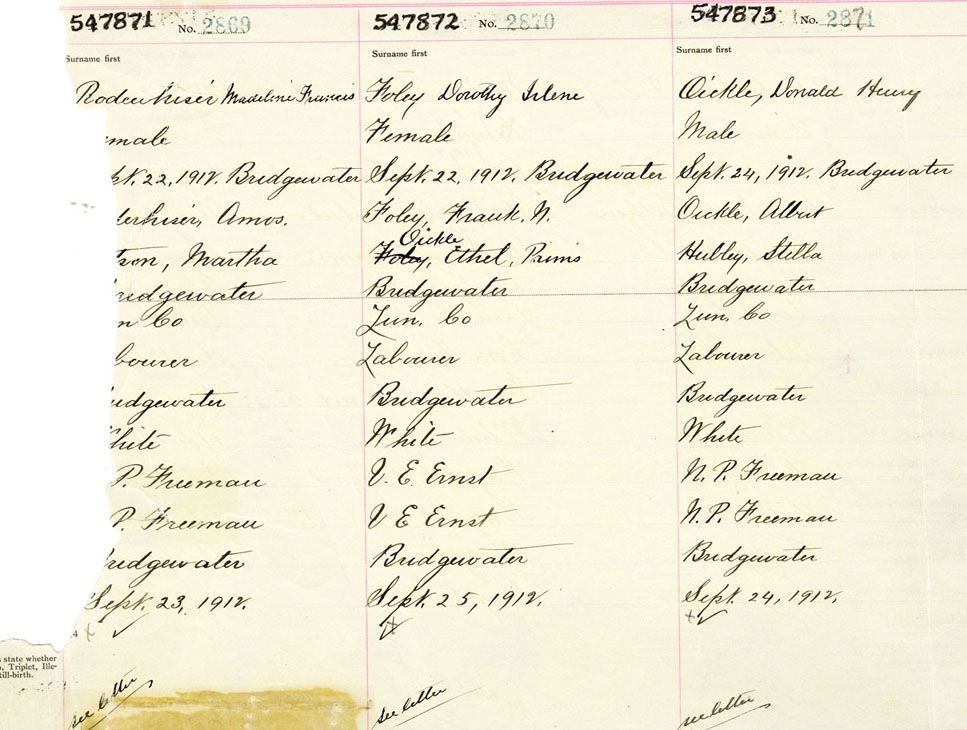 547871 No. 2869
Surname first
Rodenhiser Madeline Francis
male
pt. 22, 1912. Bridgewater
derhiser, Amos.
son, Martha
ridgewater
n Co
bourer
idgewater
hite
P. Freeman
P. Freeman
ridgewater
Sept. 23, 1912.
see letter
547872 No. 2870
Surname first
Foley Dorothy Irlene
Female
Sept. 22, 1912. Bridgewater
Foley, Frank. N.
Oickle
Foley, Ethel, Prims
Bridgewater
Lun. Co
Labourer
Bridgewater
White
V. E. Ernst
V E Ernst
Bridgewater
Sept. 25, 1912.
see letter
547873 No. 2871
Surname first
Oickle, Donald Henry
Male
Sept. 24, 1912. Bridgewater
Oickle, Albert
Hubley, Stella
Bridgewater
Lun. Co
Labourer
Bridgewater
White
N. P. Freeman
N. P. Freeman
Bridgewater
Sept. 24, 1912.
see letter
state whether
, Triplet, Ille-
till-birth.